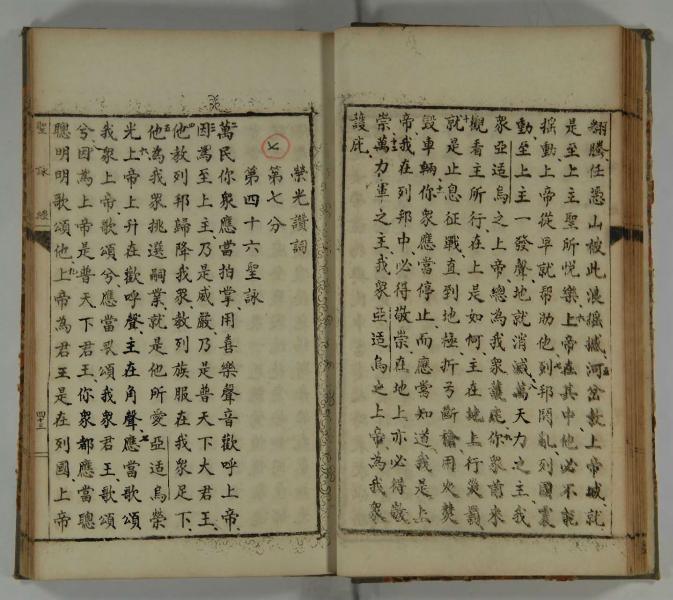 翻騰任憑山被此浪摇撼河岔教上帝城就
是至上主聖所悅樂上帝在其中他必不能
摇動上帝從早就帮助他列邦鬧亂列國震
動至上主一發聲地就消滅萬天力之主我
衆亞适烏之上帝總為我衆護庇你衆前來
觀看主所行在上是如何主在地上行災異
就是止息征戰直到地極折弓斷槍用火焚
毁車輛你衆應當停止而應當知道我是上
帝我在列邦中必得敬崇在地上亦必得敬
崇萬力軍之主我衆亞适烏之上帝為我衆
護庇
榮光讚詞
第七分
第四十六聖詠
萬民你衆應當拍掌用喜樂聲音歡呼上帝
因為至上主乃是威嚴乃是普天下大君王
他教列邦歸降我衆教列族服在我衆足下
他為我衆挑選嗣業就是他所愛亞适烏榮
光上帝上升在歡呼聲主在角聲應當歌頌
我衆上帝歌頌兮應當畏頌我衆君王歌頌
兮因為上帝是普天下君王你衆都應當聰
聰明明歌頌他上帝為君王是在列國上帝
聖詠經
四十三